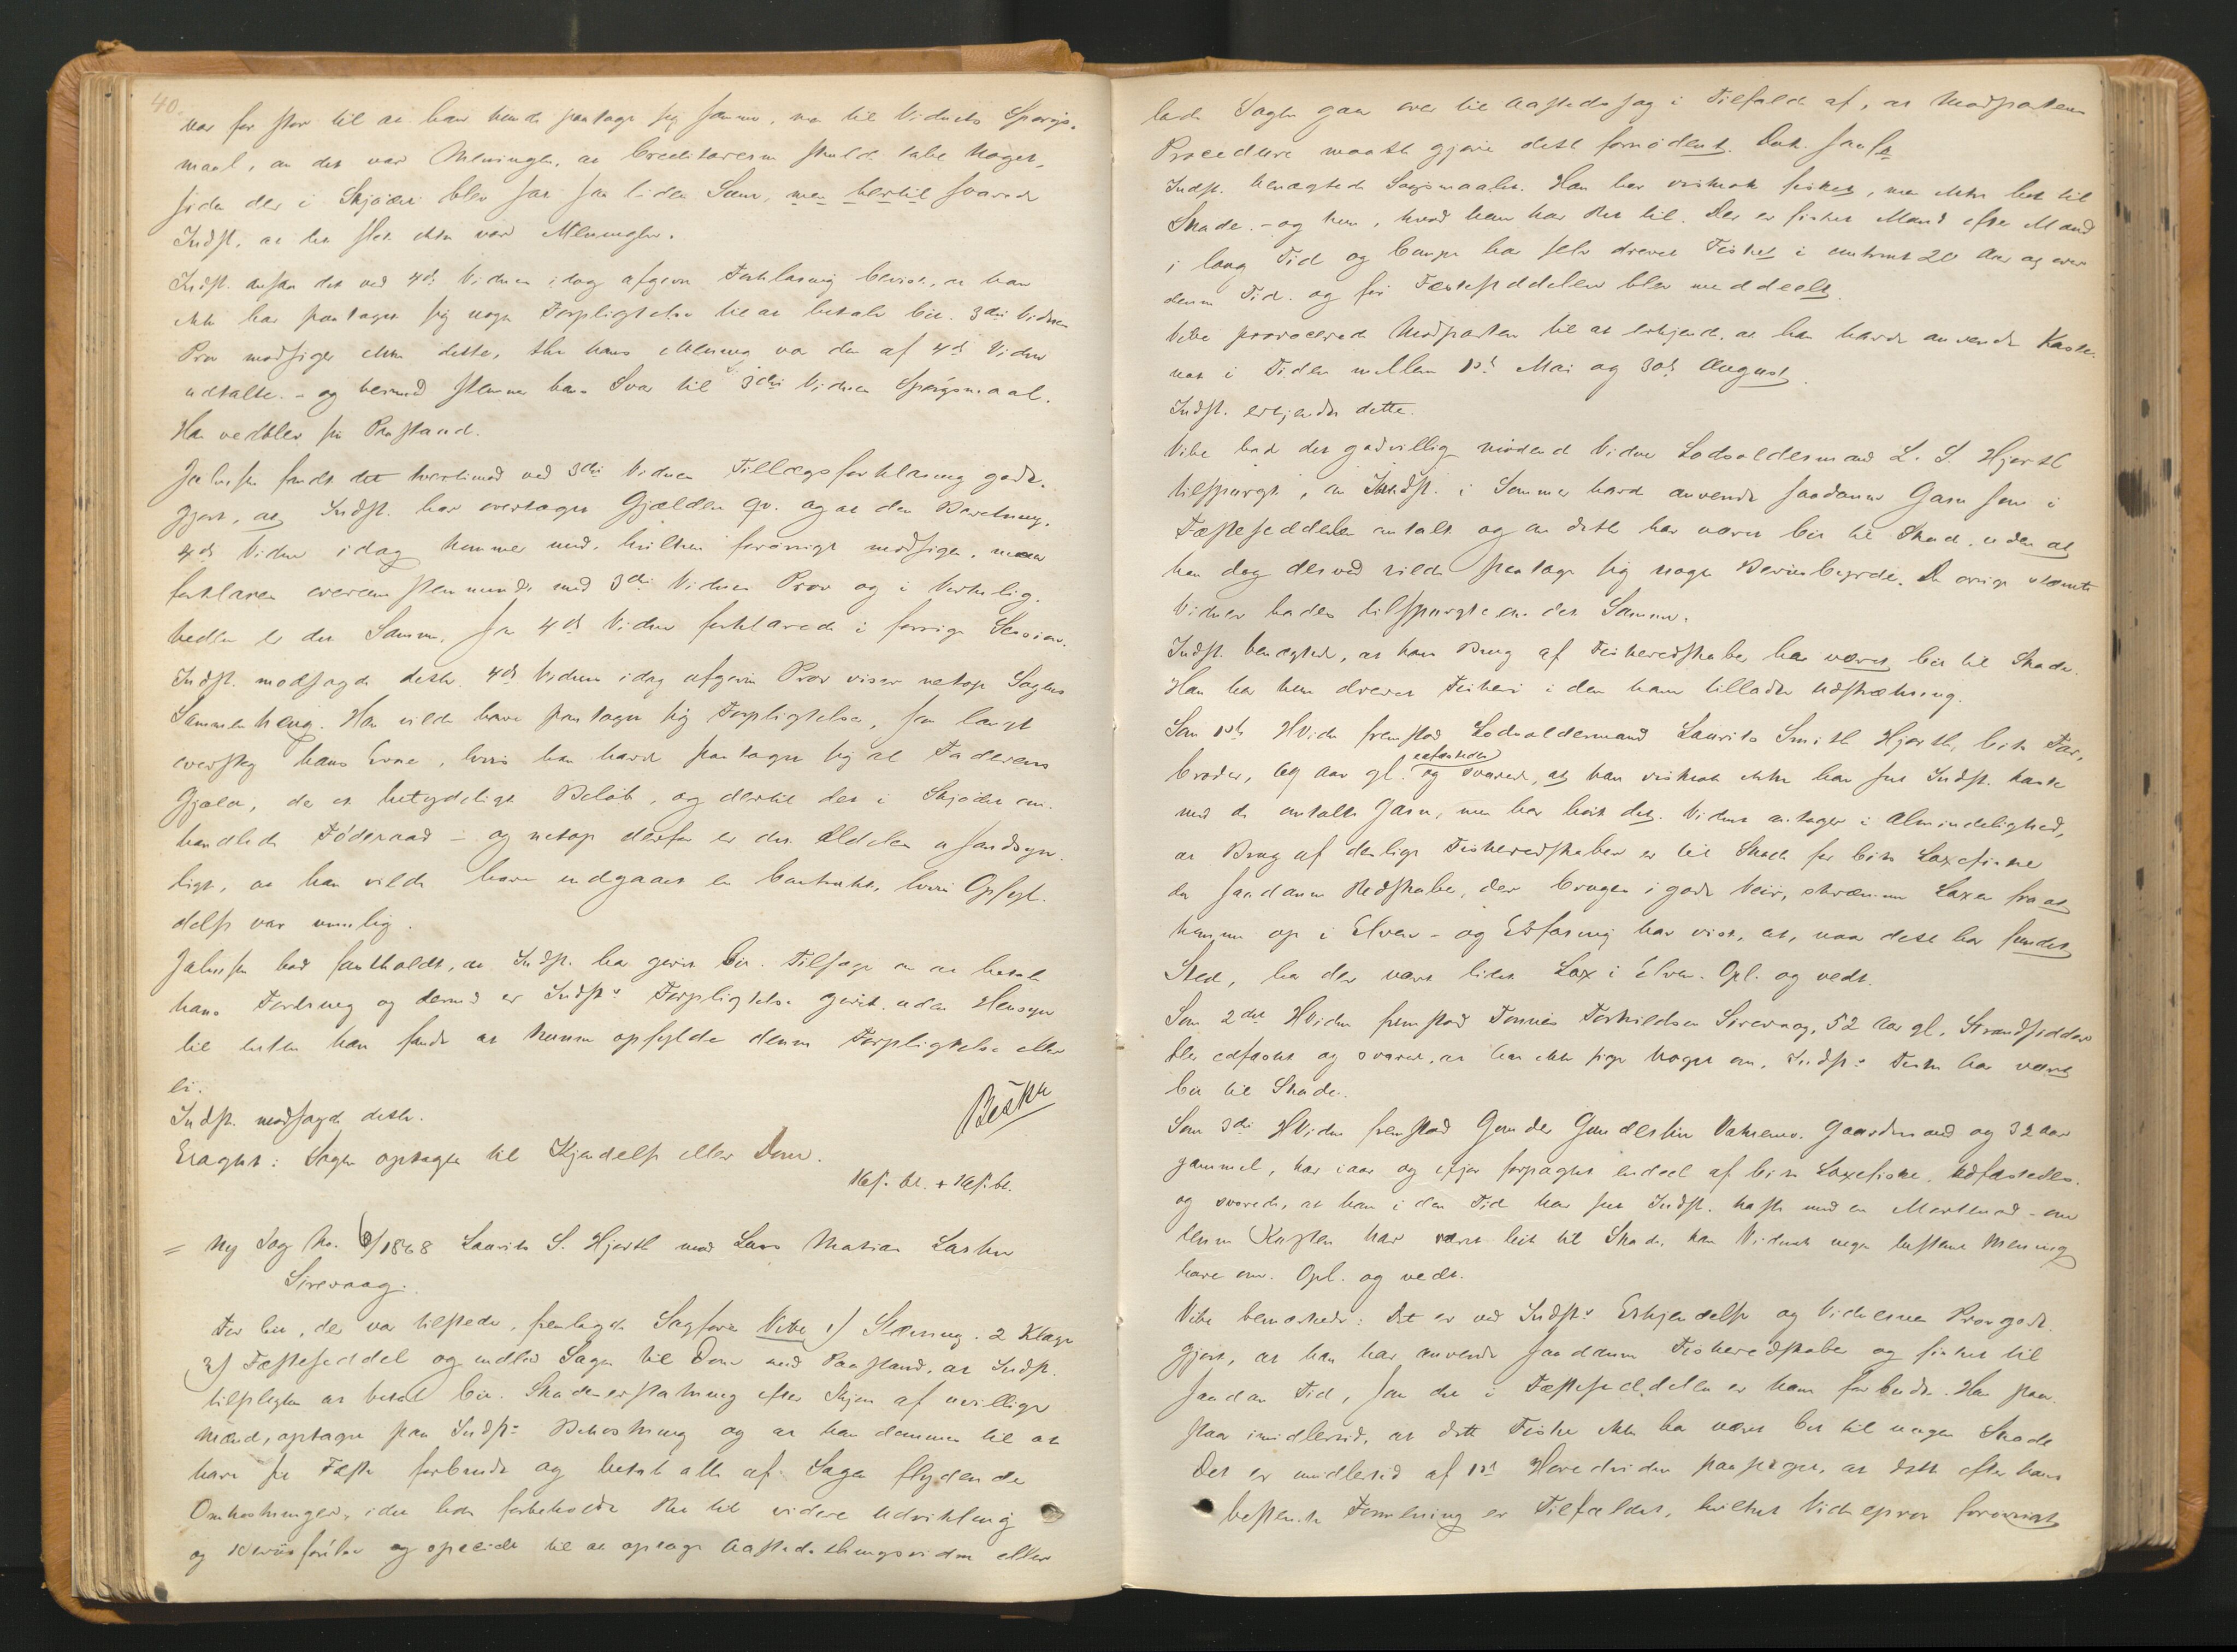 40.
var for stor til at han kunde paatage sig samme, men til Vidnets Spørgs-
maal, om det var Meningen, at Creditorerne skulde tabe Noget,
siden der i Skjødet blev sat saa liden Sum, men hertil svarede
Indst. at det slet ikke var Meningen.
Indst. ansaa det ved 4de Vidnes idag afgivne Forklaring bevist, at han
ikke har paataget sig nogen Forpligtelse til at betale Cit. 3die Vidnes
Prov modsiger ikke dette, thi hans Mening var den af 4de Vidne
udtalte - og hermed stemmer hans Svar til 3die Vidnes Spørgsmaal.
Han vedblev sin Paastand.
fandt det tvertimod ved 3die Vidnes Tillægsforklaring godt-
gjort, at Indst. har overtaget Gjælden qv. og at den Beretning,
4de Vidne idag kommer med, hvilken forøvrigt modsiges, men
forklares overensstemmende med 3die Vidnes Prov og i Virkelig-
heden er det Samme, som 4de Vidne forklarede i forrige Session.
Indst. modsagde dette. 4de Vidnes idag afgivne Prov viser netop Sagens
Sammenhæng. Han vilde have paataget sig Forpligtelse, som langt
oversteg hans Evne, hvis han havde paataget sig al Faderens
Gjæld, de et betydeligt Beløb, og dertil det i Skjødet om-
handlede Föderaad - og netop derfor er det aldeles usandsyn-
ligt, at han vilde have indgaaet en Contrakt, hvis Opfyl-
delse var umulig.
bad fastholdt, at Indst. har givet Cit. Tilsagn om at betale
hans Fordring og dermed er Indsts Forpligtelse givet uden Hensyn
til enten han fandt at kunne opfylde denne Forpligtelse eller
ei.
Indst. modsagde dette.
Eragtet: Sagen optages til Kjendelse eller Dom.
= Ny Sag No. 6/1868 Laurits S. Hjorth mod Lars Mathias Larsen
Sirevaag.
For Cit., der var tilstede, fremlagde Sagfører Vibe 1) Stævning. 2 Klage
3) Fæsteseddel og indlod Sagen til Dom med Paastand, at Indst.
tilpligtes at betale Cit. Skadeserstatning efter Skjøn af uvillige
Mænd, optaget paa Indsts Bekostning og at han dømmes til at
have sit Fæste forbrudt og betale alle af Sagen flydende
Omkostninger, idet han forbeholdt Ret til videre Udvikling
og Beviisførsel og specielt til at optage Aastedsthingsvidne eller
lade Sagen gaa over til Aastedssag i Tilfælde af, at Modpartens
Procedure maatte gjøre dette fornødent.
Indst. benægtede Søgsmaalet. Han har vistnok fisket, men ikke Cit til
Skade - og kun, hvad han har Ret til. Der er fisket Mand efter Mand
i lang Tid og har selv drevet Fisket i omtrent 20 Aar og over
denne Tid. og før Fæsteseddelen blev meddeelt.
Vibe provocerede Modparten til at erkjende, at han havde anvendt Kaste-
not i Tiden mellem 1ste Mai og 30te August.
Indst. erkjendte dette.
Vibe bad det godvillig mødende Vidne Lodsoldermand L. S. Hjorth
tilspurgt, om Indst. i Sommer havde anvendt saadanne Garn som i
Fæsteseddelen omtalt og om dette har været Cit til Skade, uden at
han dog derved vilde paatage sig nogen Bevisbyrde. De øvrige stævnte
Vidner bades tilspurgte om det Samme.
Indst. benægtede, at hans Brug af Fiskeredskaber har været Cit til Skade.
Han har kun drevet Fiskeri i den ham tilladte Udstrækning.
Som 1ste HVidne fremstod Lodsoldermand Laurits Smith Hjorth, Cits Far-
broder, 69 Aar gl. edfæstedes og svarede, at han vistnok ikke har set Indst. kaste
med de omtalte Garn, men har hørt det. Vidnet antager i Almindelighed,
at Brug af deslige Fiskeredskaber er til Skade for Cits Laxefiske
da saadanne Redskaber, der bruges i godt Veir, skræmme Laxen fra at
komme op i Elven - og Erfaring har vist, at, naar dette har fundet
Sted, har der været lidet Lax i Elven. Opl. og vedt.
Som 2det HVidne fremstod Tønnes Torkildsen Sirevaag, 52 Aar gl., Strandsidder
blev edfæstet og svarede, at han ikke siger Noget om, Indsts Fiske har været
Cit til Skade.
Som 3die HVidne fremstod Gunder Gundersen Gaardmand og 32 Aar
gammel, har iaar og ifjor forpagtet endeel af Cits Laxefiske. Edfæstedes.
og svarede, at han i den Tid har set Indst. kaste med en - om
denne Kasten har været Cit til Skade, kan Vidnet ingen bestemt Mening
have om. Opl. og vedt.
Vibe bemærkede: Det er ved Indsts Erkjendelse og Vidnernes Prov godt-
gjort, at han har anvendt saadanne Fiskeredskaber og fisket til
saadan Tid, som det i Fæsteseddelen er ham forbudt. Han paa-
staar imidlertid, at dette Fiske ikke har været Cit til nogen Skade
Det er imidlertid af 1ste Hovedvidne paapeget, at dette efter hans
bestemte Formening er Tilfældet, hvilket Vidneprov forøvrigt